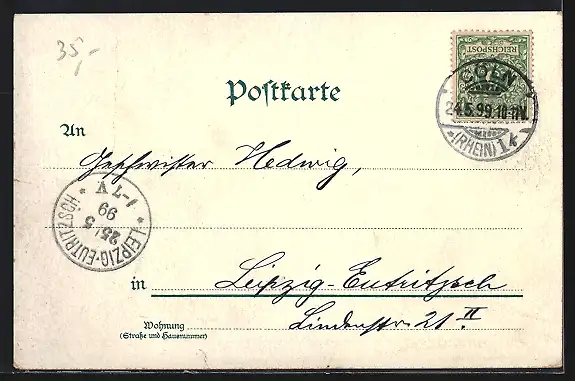 35,-
REICHSPOST
CÖLN
24.5.99.10-11V.
*(RHEIN) 1 k
Postkarte
An
Geschwister Hedwig,
1-7 V
99
25/5
* LEIPZIG-EUTRITZSCH *
in Leipzig-Eutritzsch
Wohnung
(Straße und Hausnummer)
Lindenstr. 21 II